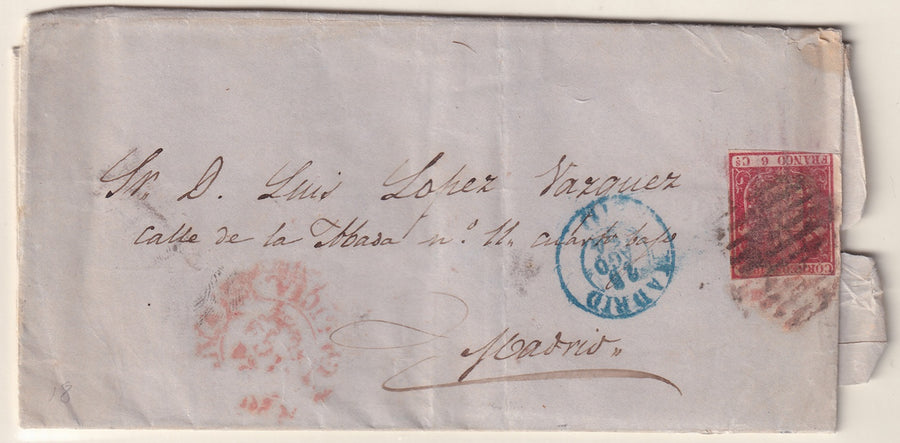 Sr. D. Luis Lopez Vazquez
Calle de la Abada nº. 11. cuarto bajo
Madrid
FRANCO 6 Cs
CORREOS
MADRID
AGO
18